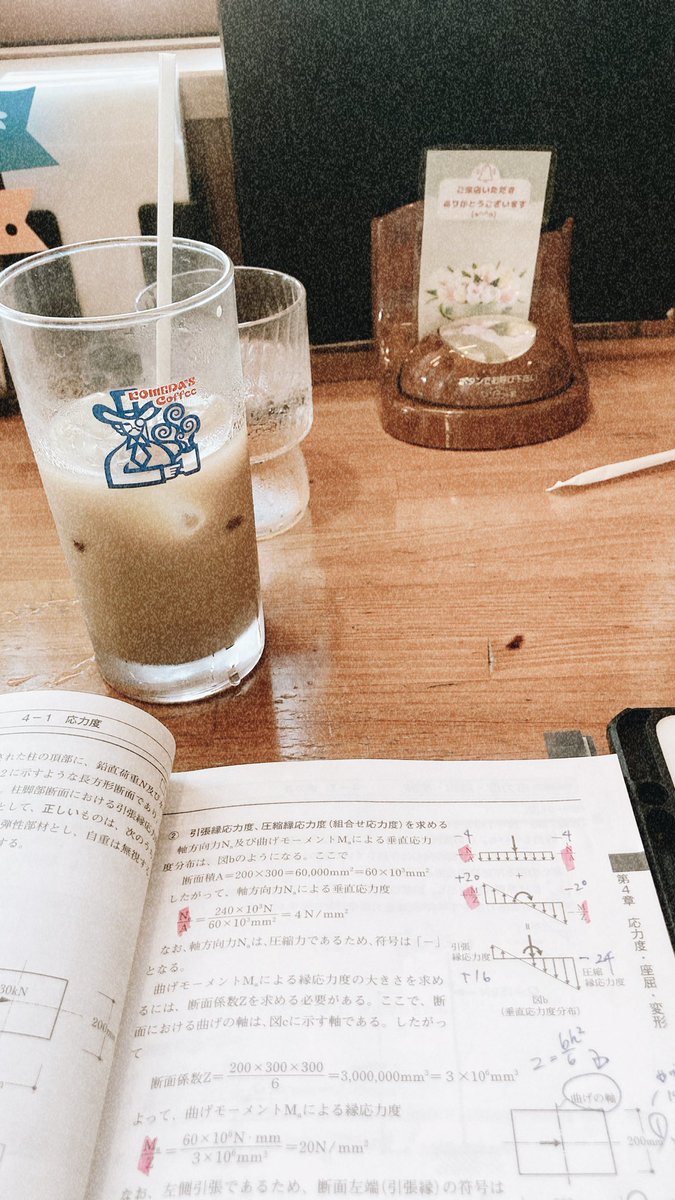 ご来店いただき
ありがとうございます
(*^^*)
KOMEDA'S
Coffee
ボタンでお呼び下さい
4-1 応力度
された柱の頂部に、鉛直荷重N及び
2に示すような長方形断面であり
柱脚部断面における引張縁応
として、正しいものは、次のう
弾性部材とし、自重は無視
する。
30kN
200
② 引張縁応力度、圧縮縁応力度(組合せ応力度)を求める
軸方向力Nₐ及び曲げモーメントMₐによる垂直応力
度分布は、図bのようになる。ここで
断面積A=200×300=60,000mm²=60×10³mm²
したがって、軸方向力Nₐによる垂直応力度
Nₐ/A=240×10³N/60×10³mm²=4N/mm²
なお、軸方向力Nₐは、圧縮力であるため、符号は「-」
となる。
曲げモーメントMₐによる縁応力度の大きさを求め
るには、断面係数Zを求める必要がある。ここで、断
面における曲げの軸は、図cに示す軸である。したがっ
て
断面係数Z=200×300×300/6=3,000,000mm³=3×10⁶mm³
よって、曲げモーメントMₐによる縁応力度
Mₐ/Z=60×10⁶N・mm/3×10⁶mm³=20N/mm²
なお、左側引張であるため、断面左端(引張縁)の符号は
-4 -4
+
+20 -20
引張
縁応力度
+16
-24
圧縮
縁応力度
図b
(垂直応力度分布)
Z=bh²/6
曲げの軸
200mm
①
第4章 応力度・座屈・変形